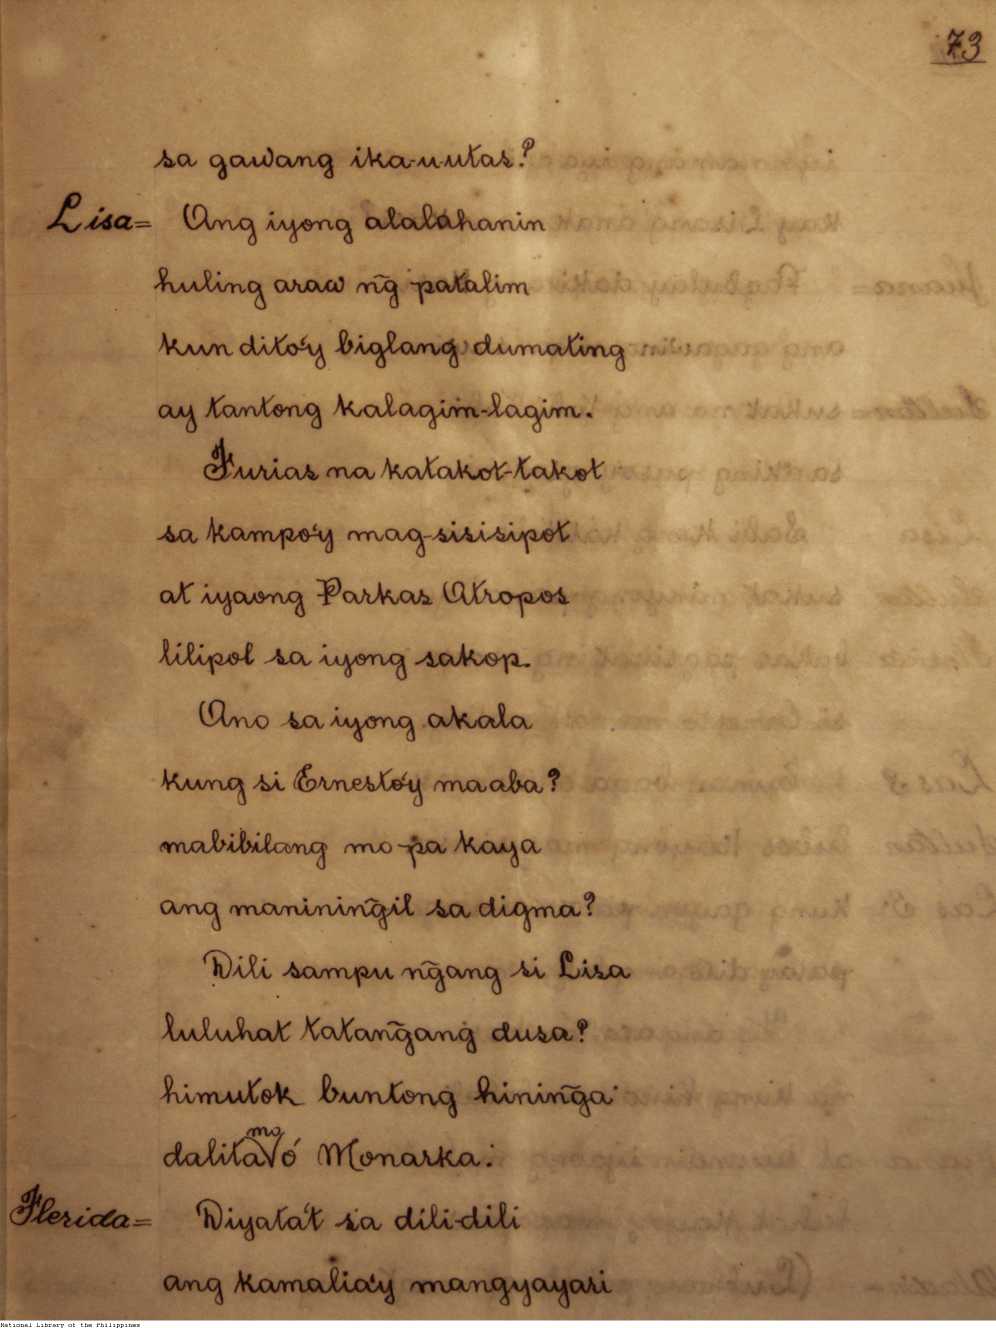 73
sa gawang ika-u-utas?
Lisa= Ang iyong alalahanin
huling araw ng̃ patalim
kun dito'y biglang dumating
ay tantong kalagim-lagim.
Furias na katakot-takot
sa kampo'y mag-sisisipot
at iyaong Parkas Atropos
lilipol sa iyong sakop.
Ano sa iyong akala
kung si Ernesto'y maaba?
mabibilang mo pa kaya
ang manining̃il sa digma?
Dili sampu ng̃ang si Lisa
luluhat tatang̃ang dusa?
himutok buntong hining̃a
mo
dalita ó Monarka.
Flerida= Diyata't sa dili-dili
ang kamalia'y mangyayari
National Library of the Philippines